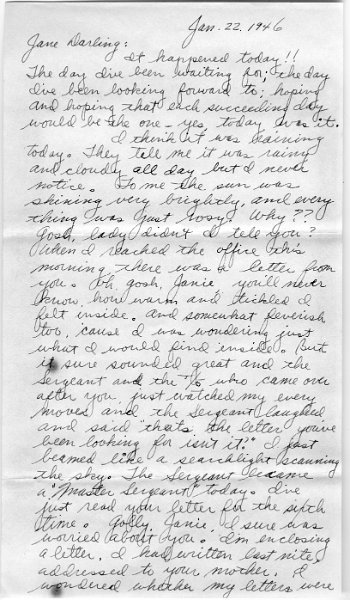 Jan. 22, 1946
Jane Darling:
It happened today!!
The day I've been waiting for, the day
I've been looking forward to; hoping
and hoping that each succeeding day
would be the one - yes, today was it.
I think it was raining
today. They tell me it was rainy
and cloudy all day but I never
notice. To me the sun was
shining very brightly, and every
thing was just rosy. Why??
Gosh, lady didn't I tell you?
When I reached the office this
morning there was a letter from
you. Oh, gosh, Janie you'll never
know, how warm and tickled I
felt inside. And somewhat feverish
too, 'cause I was wondering just
what I would find inside. But
it sure sounded great and the
Sergeant and the who came over
after you, just watched my every
moves and the Sergeant laughed
and said "thats the letter you've
been looking for isn't it?" I just
beamed like a searchlight scanning
the sky. The Sergeant became
a "Master Sergeant" today. I've
just read your letter for the fifth
time. Golly, Janie, I sure was
worried about you. I'm enclosing
a letter, I had written last nite,
addressed to your mother. I
wondered whether my letters were